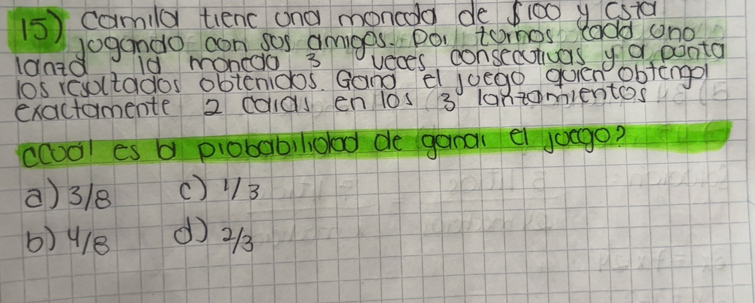 15) Camila tiene una moneda de $100 y esta
jugando con sus amigos. Por turnos cada uno
lanza la moneda 3 veces consecutivas y apunta
los resultados obtenidos. Gana el juego quien obtenga
exactamente 2 caras en los 3 lanzamientos
ccual es la probabilidad de ganar el juego?
a) 3/8 c) 1/3
b) 4/8 d) 2/3